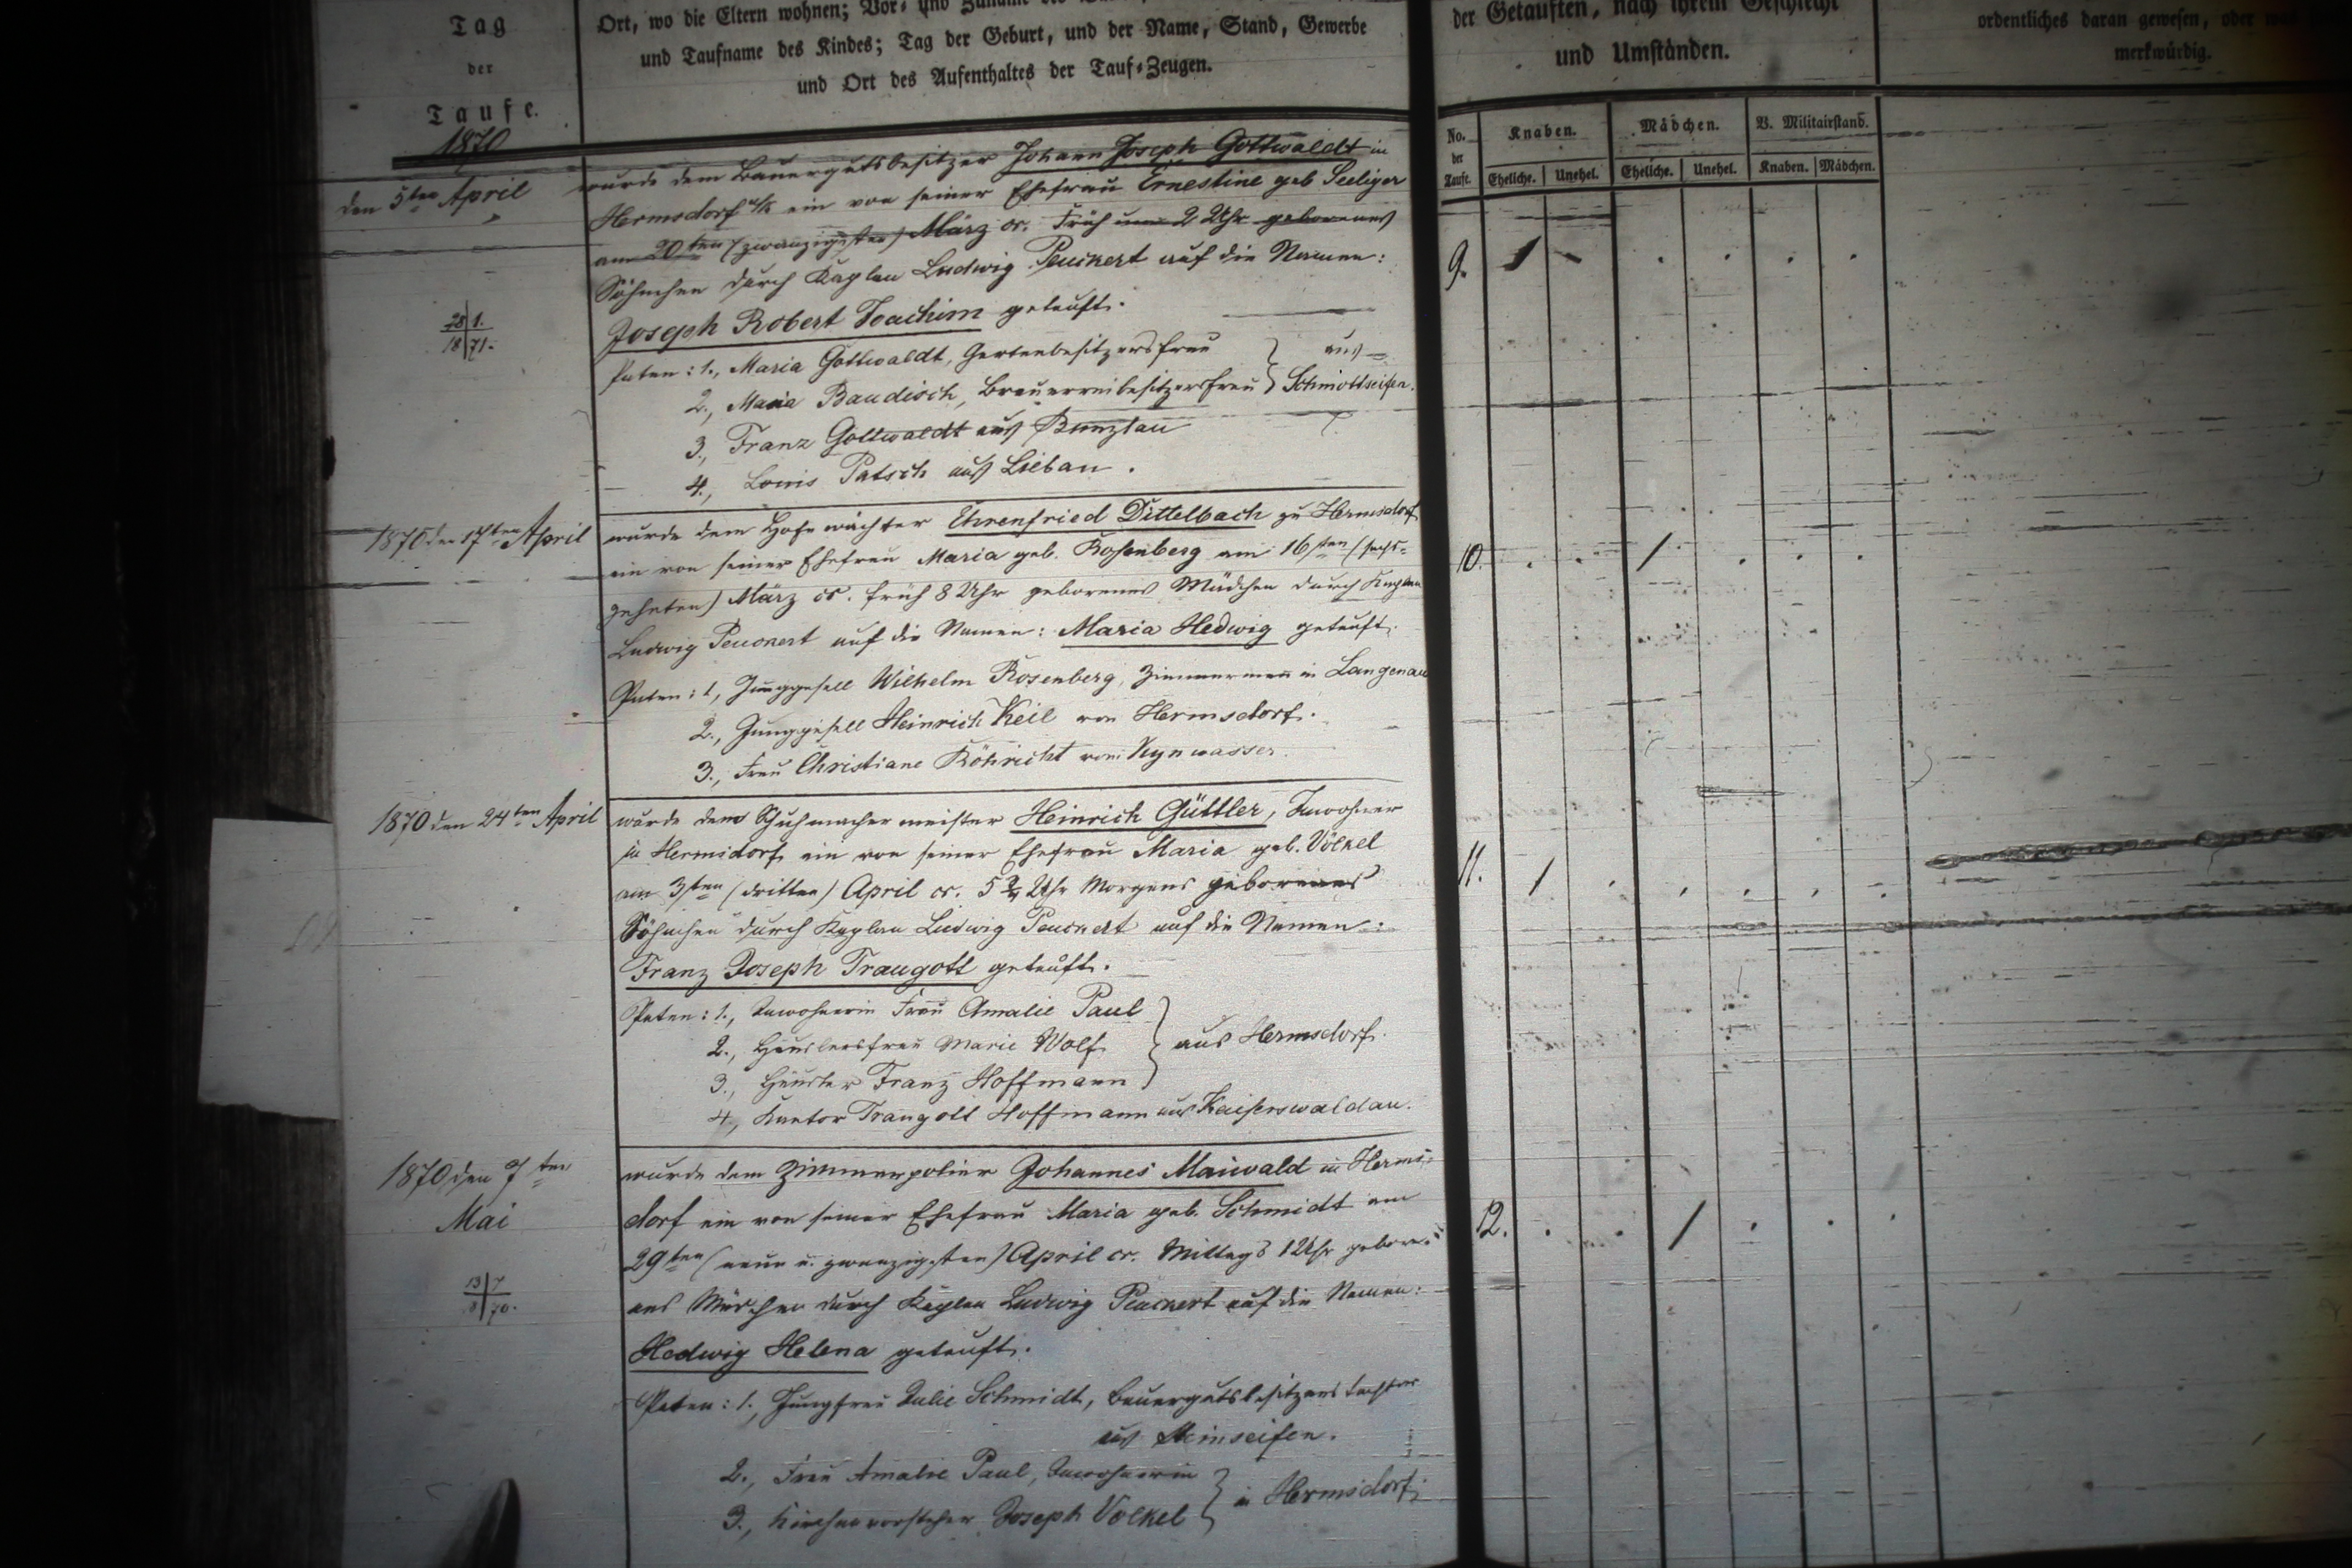 Tag
der
Taufe.
1870
Ort, wo die Eltern wohnen; Vor- und Zuname des
und Taufname des Kindes; Tag der Geburt, und der Name, Stand, Gewerbe
und Ort des Aufenthaltes der Tauf-Zeugen.
der Getauften, nach ihrem Geschlecht
und Umständen.
ordentliches daran gewesen, oder was
merkwürdig.
No. der Taufe.
Knaben.
Mädchen.
B. Militairstand.
Eheliche. Unehel. Eheliche. Unehel. Knaben. Mädchen.
den 5ten April
wurde dem Bauergutsbesitzer Johann Joseph Gottwaldt in
Hermsdorf u/k ein von seiner Ehefrau Ernestine geb Seeliger
am 20ten (zwanzigsten) März cr. Früh um 2 Uhr geborenes
Söhnchen durch Kaplan Ludwig Peuckert auf die Namen:
Joseph Robert Joachim getauft.
28 1.
18 71.
Paten: 1., Maria Gottwaldt, Gartenbesitzersfrau
2., Maria Baudisch, Brauereibesitzersfrau } aus Schmottseifen.
3., Franz Gottwaldt aus Bunzlau
4., Louis Patsch aus Liebau.
9. 1
1870 den 17ten April
wurde dem Hofewächter Ehrenfried Dittelbach zu Hermsdorf
ein von seiner Ehefrau Maria geb. Rosenberg am 16ten (sechs-
zehnten) März cr. früh 8 Uhr geborenes Mädchen durch Kaplan
Ludwig Peuckert auf die Namen: Maria Hedwig getauft.
Paten: 1, Junggesell Wilhelm Rosenberg, Zimmermann in Langenau
2., Junggesell Heinrich Keil von Hermsdorf.
3., Frau Christiane Röhricht von Kynwasser.
10. /
1870 den 24ten April
wurde dem Schuhmachermeister Heinrich Güttler, Inwohner
in Hermsdorf, ein von seiner Ehefrau Maria geb. Völkel
am 3ten (dritten) April cr. 5 3/4 Uhr Morgens geborenes
Söhnchen durch Kaplan Ludwig Peuckert auf die Namen:
Franz Joseph Traugott getauft.
Paten: 1., Inwohnerin Frau Amalie Paul
2., Häuslersfrau Marie Wolf } aus Hermsdorf.
3., Häusler Franz Hoffmann
4., Kantor Traugott Hoffmann aus Kaiserswaldau.
11. /
1870 den 7ten
Mai
wurde dem Zimmerpolier Johannes Maiwald in Herms-
dorf ein von seiner Ehefrau Maria geb. Schmidt am
29ten (neun u. zwanzigsten) April cr. Mittags 1 Uhr gebore-
nes Mädchen durch Kaplan Ludwig Peuckert auf die Namen:
Hedwig Helena getauft.
13 7
18 70.
Paten: 1., Jungfrau Julie Schmidt, Bauergutsbesitzerstochter
aus Steinseifen.
2., Frau Amalie Paul, Inwohnerin
3., Kirchenvorsteher Joseph Völkel } in Hermsdorf.
12. /